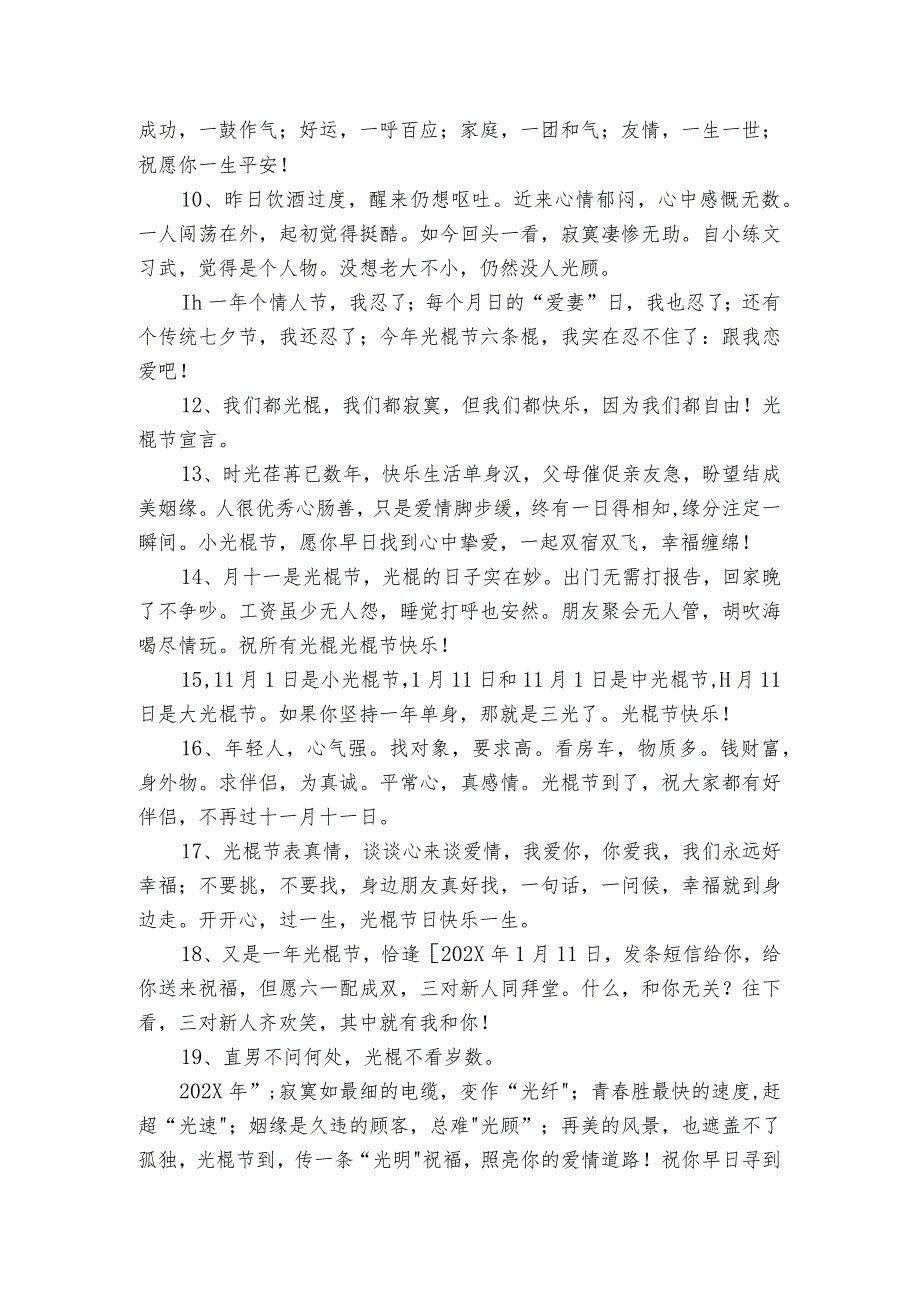 成功，一鼓作气；好运，一呼百应；家庭，一团和气；友情，一生一世；
祝愿你一生平安！
10、昨日饮酒过度，醒来仍想呕吐。近来心情郁闷，心中感慨无数。
一人闯荡在外，起初觉得挺酷。如今回头一看，寂寞凄惨无助。自小练文
习武，觉得是个人物。没想老大不小，仍然没人光顾。
Ih 一年个情人节，我忍了；每个月日的“爱妻”日，我也忍了；还有
个传统七夕节，我还忍了；今年光棍节六条棍，我实在忍不住了：跟我恋
爱吧！
12、我们都光棍，我们都寂寞，但我们都快乐，因为我们都自由！光
棍节宣言。
13、时光荏苒已数年，快乐生活单身汉，父母催促亲友急，盼望结成
美姻缘。人很优秀心肠善，只是爱情脚步缓，终有一日得相知,缘分注定一
瞬间。小光棍节，愿你早日找到心中挚爱，一起双宿双飞，幸福缠绵！
14、月十一是光棍节，光棍的日子实在妙。出门无需打报告，回家晚
了不争吵。工资虽少无人怨，睡觉打呼也安然。朋友聚会无人管，胡吹海
喝尽情玩。祝所有光棍光棍节快乐！
15,11月1日是小光棍节,1月11日和11月1日是中光棍节,H月11
日是大光棍节。如果你坚持一年单身，那就是三光了。光棍节快乐！
16、年轻人，心气强。找对象，要求高。看房车，物质多。钱财富，
身外物。求伴侣，为真诚。平常心，真感情。光棍节到了，祝大家都有好
伴侣，不再过十一月十一日。
17、光棍节表真情，谈谈心来谈爱情，我爱你，你爱我，我们永远好
幸福；不要挑，不要找，身边朋友真好找，一句话，一问候，幸福就到身
边走。开开心，过一生，光棍节日快乐一生。
18、又是一年光棍节，恰逢［202X年1月11日，发条短信给你，给
你送来祝福，但愿六一配成双，三对新人同拜堂。什么，和你无关？往下
看，三对新人齐欢笑，其中就有我和你！
19、直男不问何处，光棍不看岁数。
202X年”;寂寞如最细的电缆，变作“光纤"；青春胜最快的速度,赶
超“光速"；姻缘是久违的顾客，总难"光顾”；再美的风景，也遮盖不了
孤独，光棍节到，传一条“光明"祝福，照亮你的爱情道路！祝你早日寻到